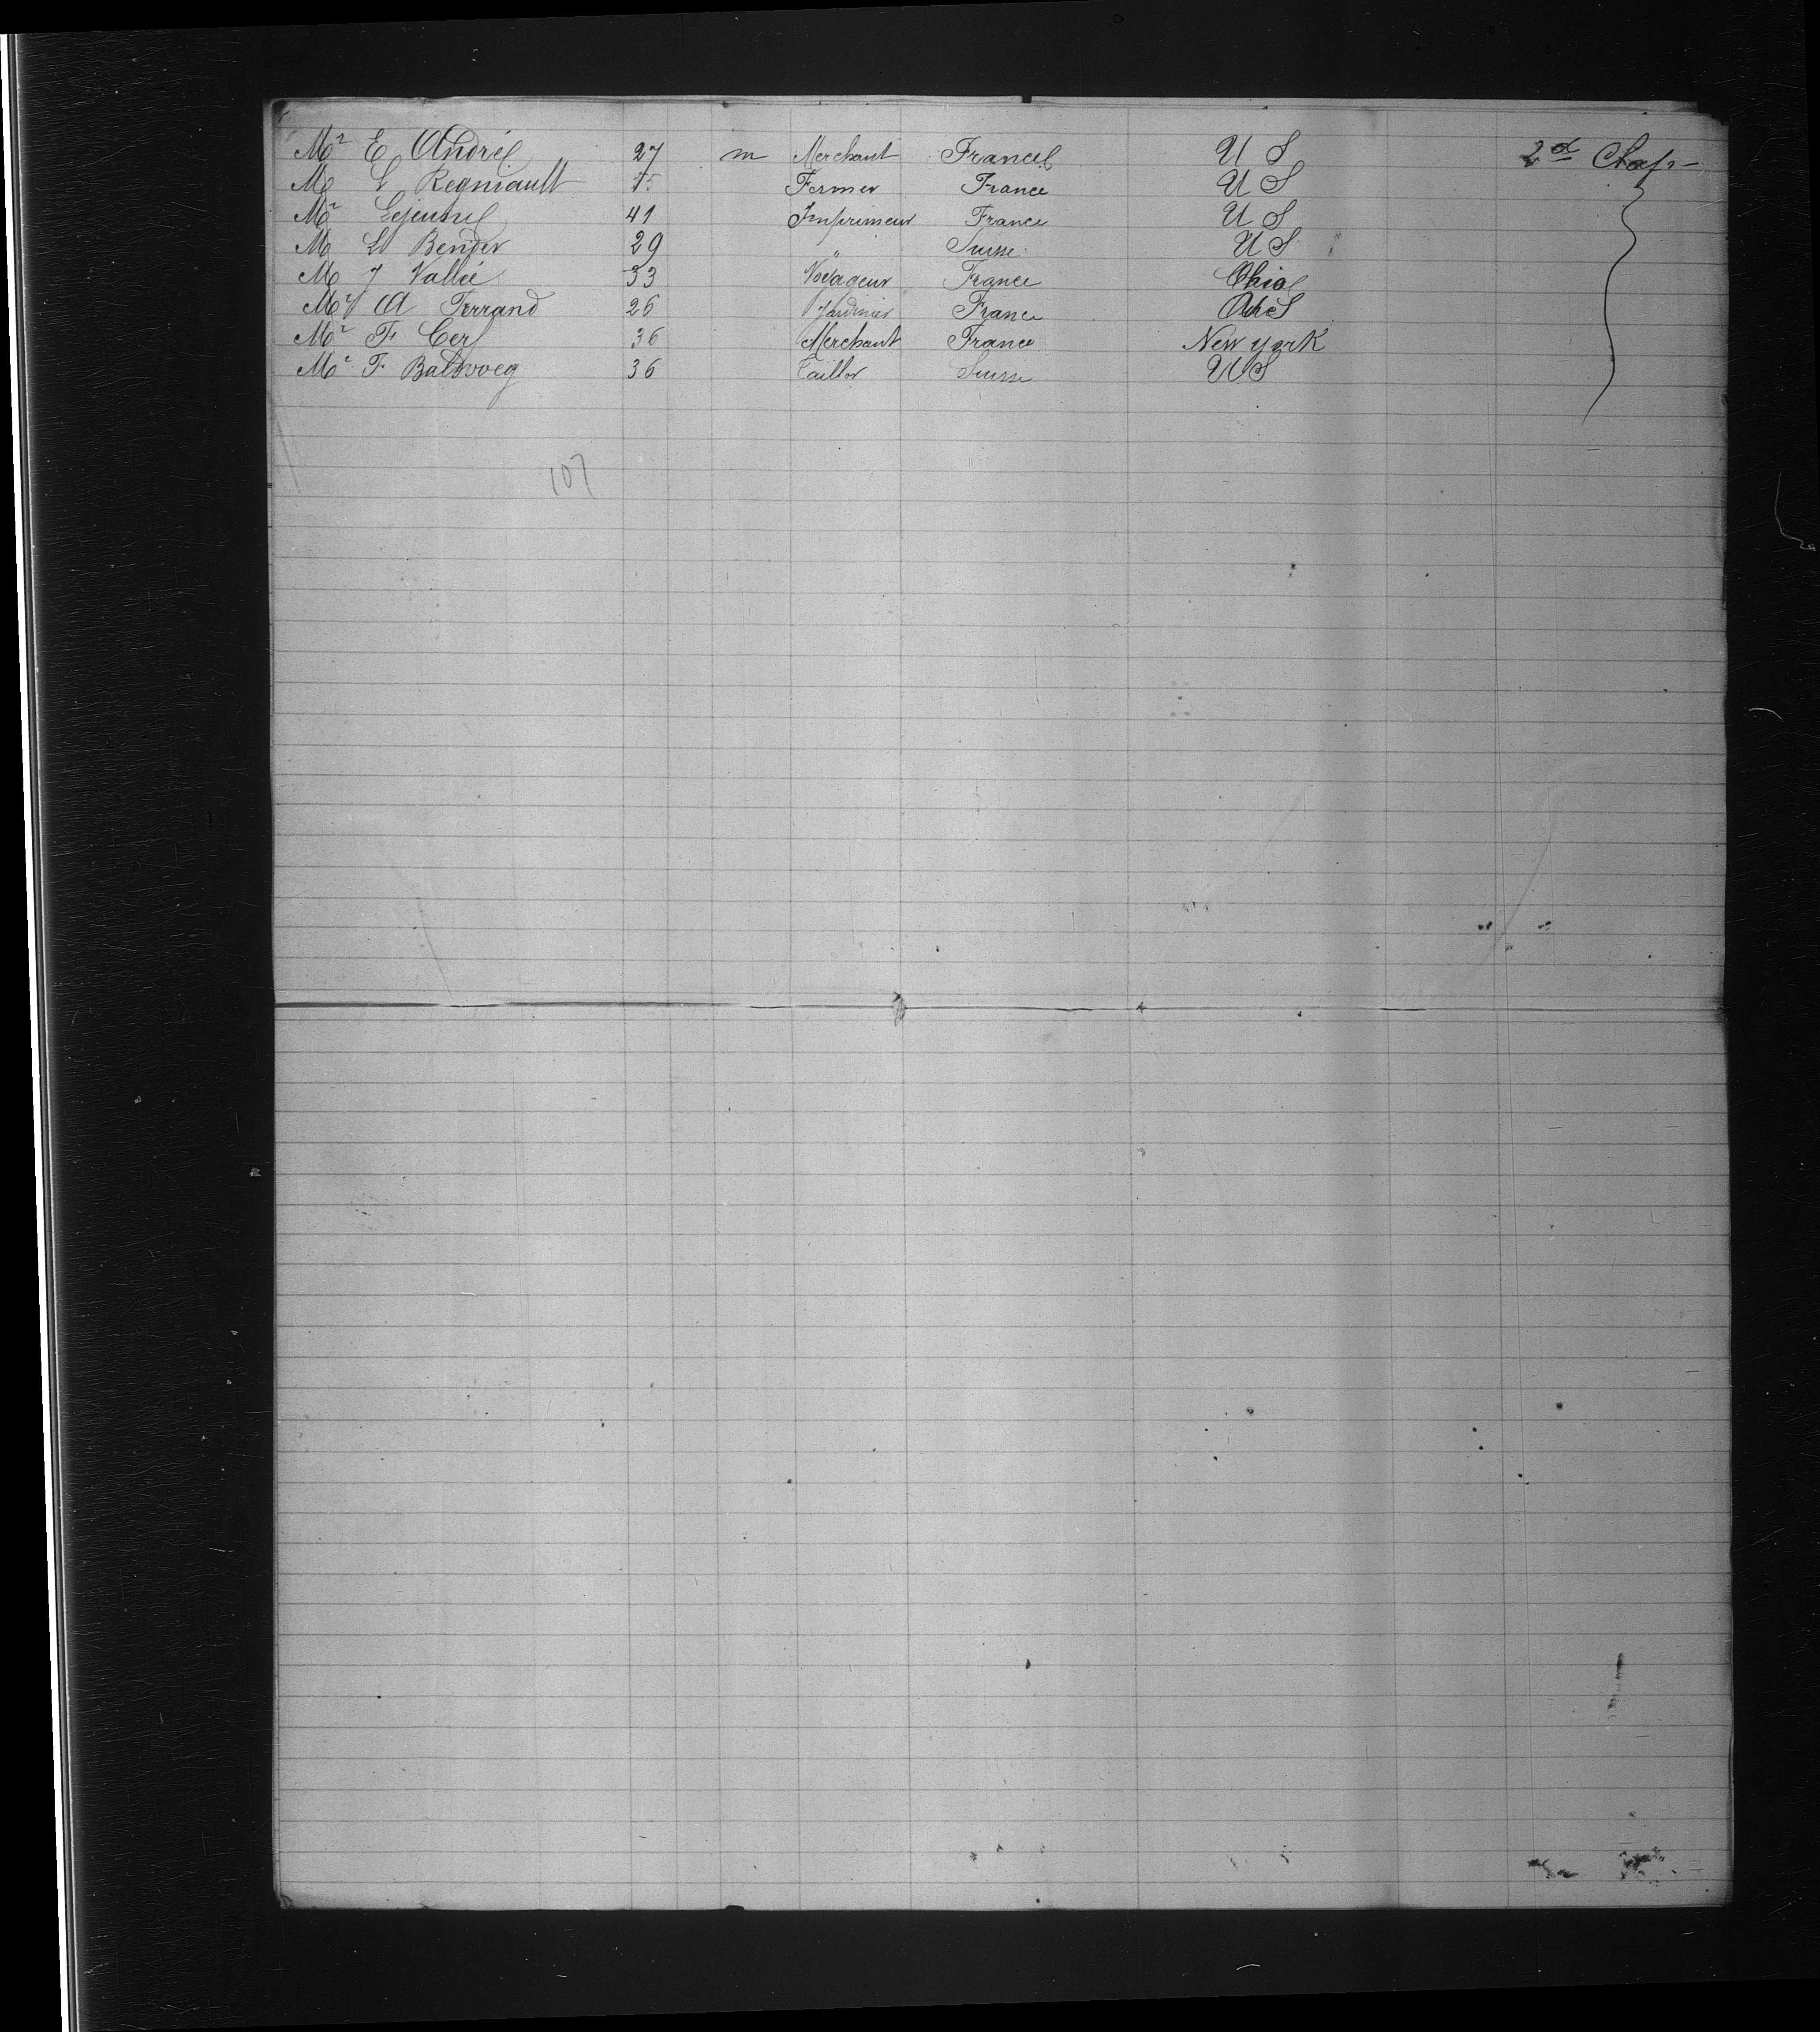 Mr E André 27 m Merchant France U S 2d Class
M L Regniault Fermer France U S
Mr Lejeune 41 Imprimeur France U S
M L Bender 29 " Suisse U S
M J Vallée 33 Voyageur France Ohio
Mr A Ferrand 26 Jardinier France
Mr F Cerf 36 Merchant France New york
Mr F 36 Taillor Suisse US
107